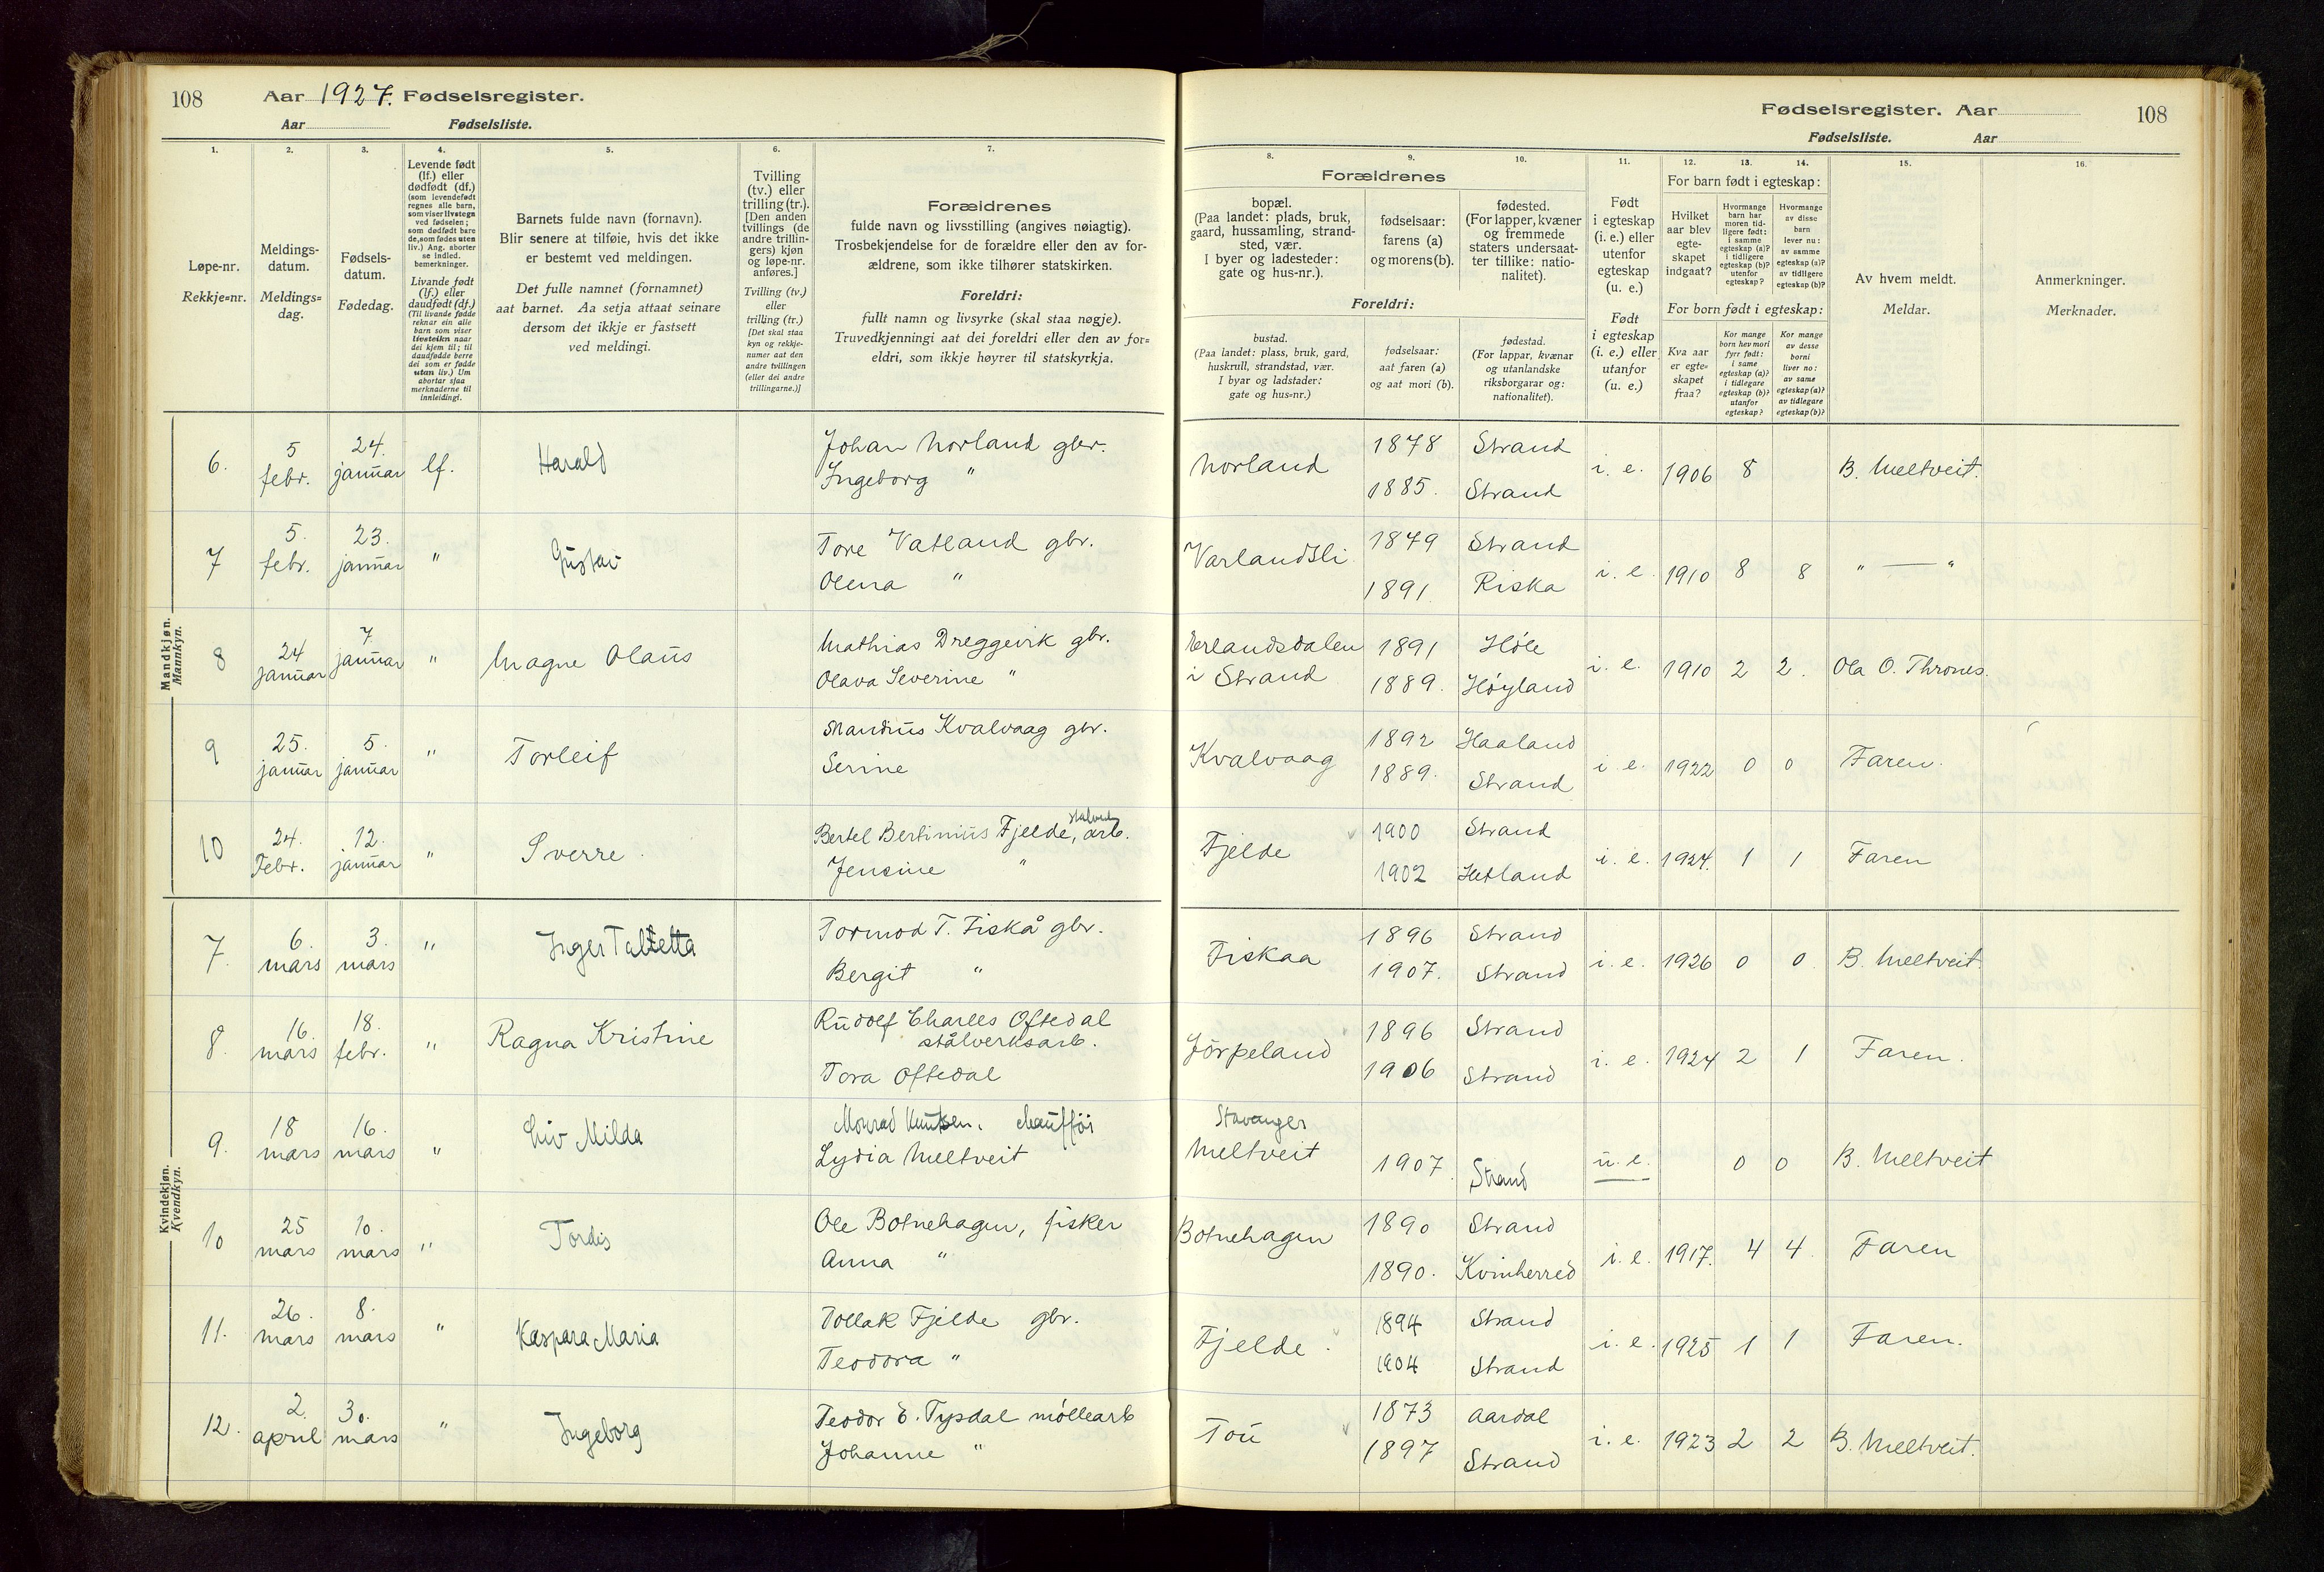 108 Aar 1927. Fødselsregister.
Aar Fødselsliste.
Fødselsregister. Aar 108
Fødselsliste. Aar
1. 2. 3. 4. 5. 6. 7. 8. 9. 10. 11. 12. 13. 14. 15. 16.
Løpe-nr.
Rekkje=nr.
Meldings-
datum.
Meldings=
dag.
Fødsels-
datum.
Fødedag.
Levende født
(lf.) eller
dødfødt (df.)
(som levendefødt
regnes alle barn,
som viser livstegn
ved fødselen;
som dødfødt bare
de, som fødes uten
liv.) Ang. aborter
se indled.
bemerkninger.
Livande født
(lf.) eller
daudfødt (df.)
(Til livande fødde
reknar ein alle
barn som viser
livsteikn naar
dei kjem til; til
daudfødde berre
dei som er fødde
utan liv.) Um
abortar sjaa
merknaderne til
innleidingi.
Barnets fulde navn (fornavn).
Blir senere at tilføie, hvis det ikke
er bestemt ved meldingen.
Det fulle namnet (fornamnet)
aat barnet. Aa setja attaat seinare
dersom det ikkje er fastsett
ved meldingi.
Tvilling
(tv.) eller
trilling (tr.).
[Den anden
tvillings (de
andre trillin-
gers) kjøn
og løpe-nr.
anføres.]
Tvilling (tv.)
eller
trilling (tr.)
[Det skal staa
kyn og rekkje-
numer aat den
andre tvillingen
(eller dei andre
trillingarne.)]
Forældrenes
fulde navn og livsstilling (angives nøiagtig).
Trosbekjendelse for de forældre eller den av for-
ældrene, som ikke tilhører statskirken.
Foreldri:
fullt namn og livsyrke (skal staa nøgje).
Truvedkjenningi aat dei foreldri eller den av for=
eldri, som ikkje høyrer til statskyrkja.
Forældrenes
bopæl.
(Paa landet: plads, bruk,
gaard, hussamling, strand-
sted, vær.
I byer og ladesteder:
gate og hus-nr.).
fødselsaar:
farens (a)
og morens (b).
fødested.
(For lapper, kvæner
og fremmede
staters undersaat-
ter tillike: natio-
nalitet).
Foreldri:
bustad.
(Paa landet: plass, bruk, gard,
huskrull, strandstad, vær.
I byar og ladstader:
gate og hus=nr.)
fødselsaar:
aat faren (a)
og aat mori (b).
fødestad.
(For lappar, kvænar
og utanlandske
riksborgarar og:
nationalitet).
Født
i egteskap
(i. e.) eller
utenfor
egteskap
(u. e.)
Født
i egteskap
(i. e.) eller
utanfor
(u. e.)
For barn født i egteskap:
Hvilket
aar blev
egte-
skapet
indgaat?
Hvormange
barn har
moren tid-
ligere født:
i samme
egteskap (a)?
i tidligere
egteskap (b)?
utenfor
egteskap?
Hvormange
av disse
barn
lever nu:
av samme
egteskap (a)?
av tidligere
egteskap (b)?
For born født i egteskap:
Kva aar
er egte=
skapet
fraa?
Kor mange
born hev mori
fyrr født:
i same
egteskap (a)?
i tidlegare
egteskap (b)?
utanfor
egteskap?
Kor mange
av desse
borni
liver no:
av same
egteskap (a)?
av tidlegare
egteskap (b)?
Av hvem meldt.
Meldar.
Anmerkninger.
Merknader.
Mandkjøn.
Mannkyn.
6. 5 febr. 24. januar lf. Harald Johan Norland gbr. Norland 1878 Strand i. e. 1906 8 B. Meltveit.
Ingeborg " 1885. Strand
7 5. febr. 23. januar " Gustav Tore Vatland gbr. Varlandsli 1879 Strand i. e. 1910 8 8 " — "
Olena " 1891. Riska
8 24 januar 7. januar " Magne Olaus Mathias Dreggevik gbr. Erlandsdalen 1891 Høle i. e. 1910 2 2. Ola O. Thrones.
Olava Severine " i Strand 1889. Høyland
9 25. januar 5. januar " Torleif Mandius Kvalvaag gbr. Kvalvaag 1892 Haaland i. e. 1922 0 0 Faren.
Serine 1889. Strand
10 24. Febr. 12. januar " Sverre. Bertel Bertinius Fjelde, stålverks arb. Fjelde 1900 Strand i. e. 1924. 1 1 Faren
Jensine " 1902 Hetland
Kvindekjøn.
Kvendkyn.
7. 6. mars 3. mars " Inger Tabletta Tormod T. Fiskå gbr. Fiskaa 1896 Strand i. e. 1926 0 0 B. Meltveit.
Bergit " 1907. Strand
8. 16. mars 18. febr. " Ragna Kristine Rudolf Charles Oftedal Jörpeland 1896 Strand i. e. 1924 2 1 Faren.
stålverksarb.
Tora Oftedal 1906 Strand
9. 18 mars 16. mars " Liv Milda Monrad Knutsen, chauffør Stavanger
Lydia Meltveit Meltveit 1907. Strand u. e. 0 0 B. Meltveit
10 25 mars 10. mars " Tordis Ole Botnehagen, fisker Botnehagen 1890 Strand i. e. 1917. 4 4. Faren
Anna " 1890. Kvinherred
11. 26. mars 8. mars " Kaspara Maria Tollak Fjelde gbr. Fjelde 1894 Strand i. e. 1925 1 1 Faren.
Teodora " 1904 Strand
12. 2. april 30. mars " Ingeborg Teodor E. Tysdal möllearb Tou 1873 Aardal i. e. 1923 2 2 B. Meltveit.
Johanne " 1897 Strand